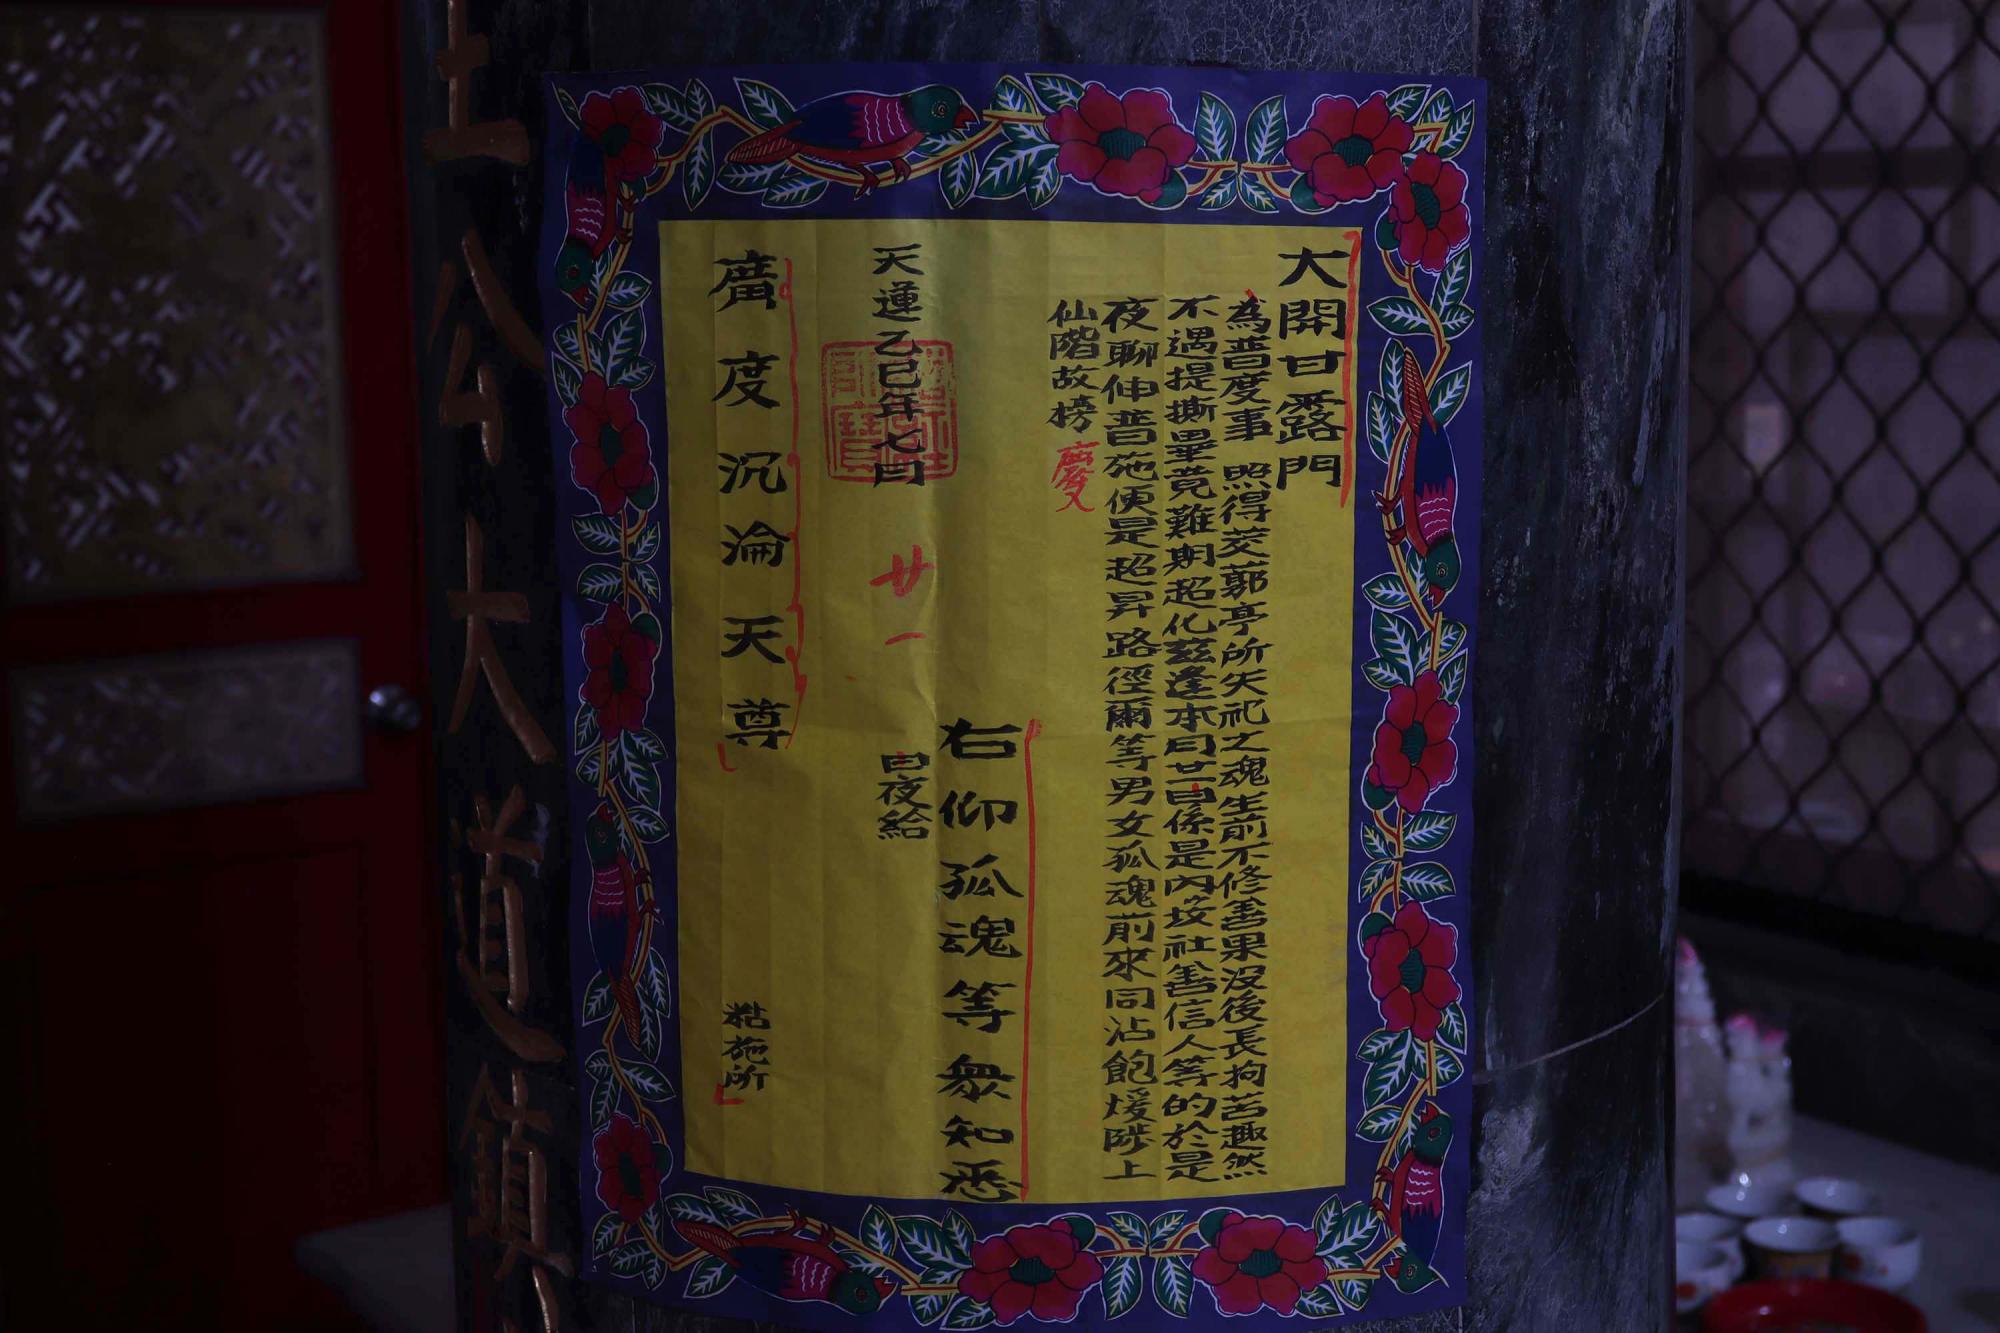 大開甘露門
為普度事　照得茭藔亭所失祀之魂生前不修善果沒後長拘苦趣然
不遇提撕畢竟難期超化茲逢本月廿一日係是內坡社善信人等的於是
夜聊伸普施便是超昇路徑爾等男女孤魂前來同沾飽煖陟上
仙階故榜
右仰孤魂等眾知悉
天運乙巳年七月廿一日夜給
廣度沉淪天尊
粘施所
公大道鎮